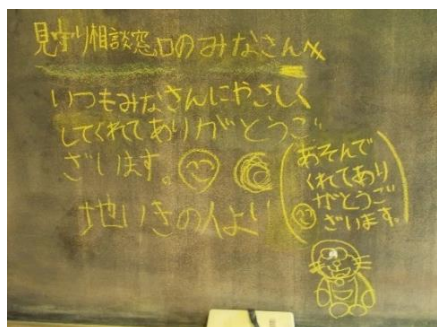 見守り相談窓口のみなさんへ
いつもみなさんにやさしく
してくれてありがとうご
ざいます。
地いきの人より
あそんで
くれてあり
がとうご
ざいます。